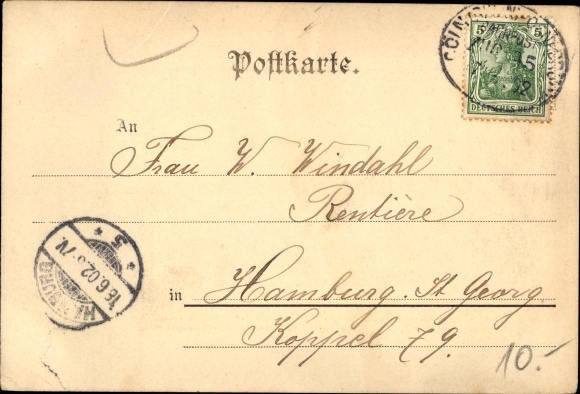 5 5
DEUTSCHES REICH
Postkarte.
An
Frau W. Windahl
Rentière
in Hamburg. St Georg
Koppel 79.
HAMBURG
16.6.02. N.
* 5 *
10.-